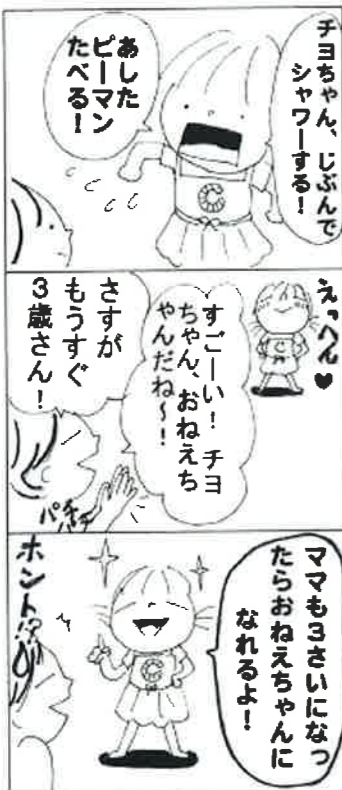 チヨちゃん、じぶんで
シャワーする！
あした
ピーマン
たべる！
C
えっへん♥
C
すごーい！チヨ
ちゃん、おねえち
ゃんだね～！
さすが
もうすぐ
３歳さん！
パチパチ
ママも３さいになっ
たらおねえちゃんに
なれるよ！
C
ホント!?